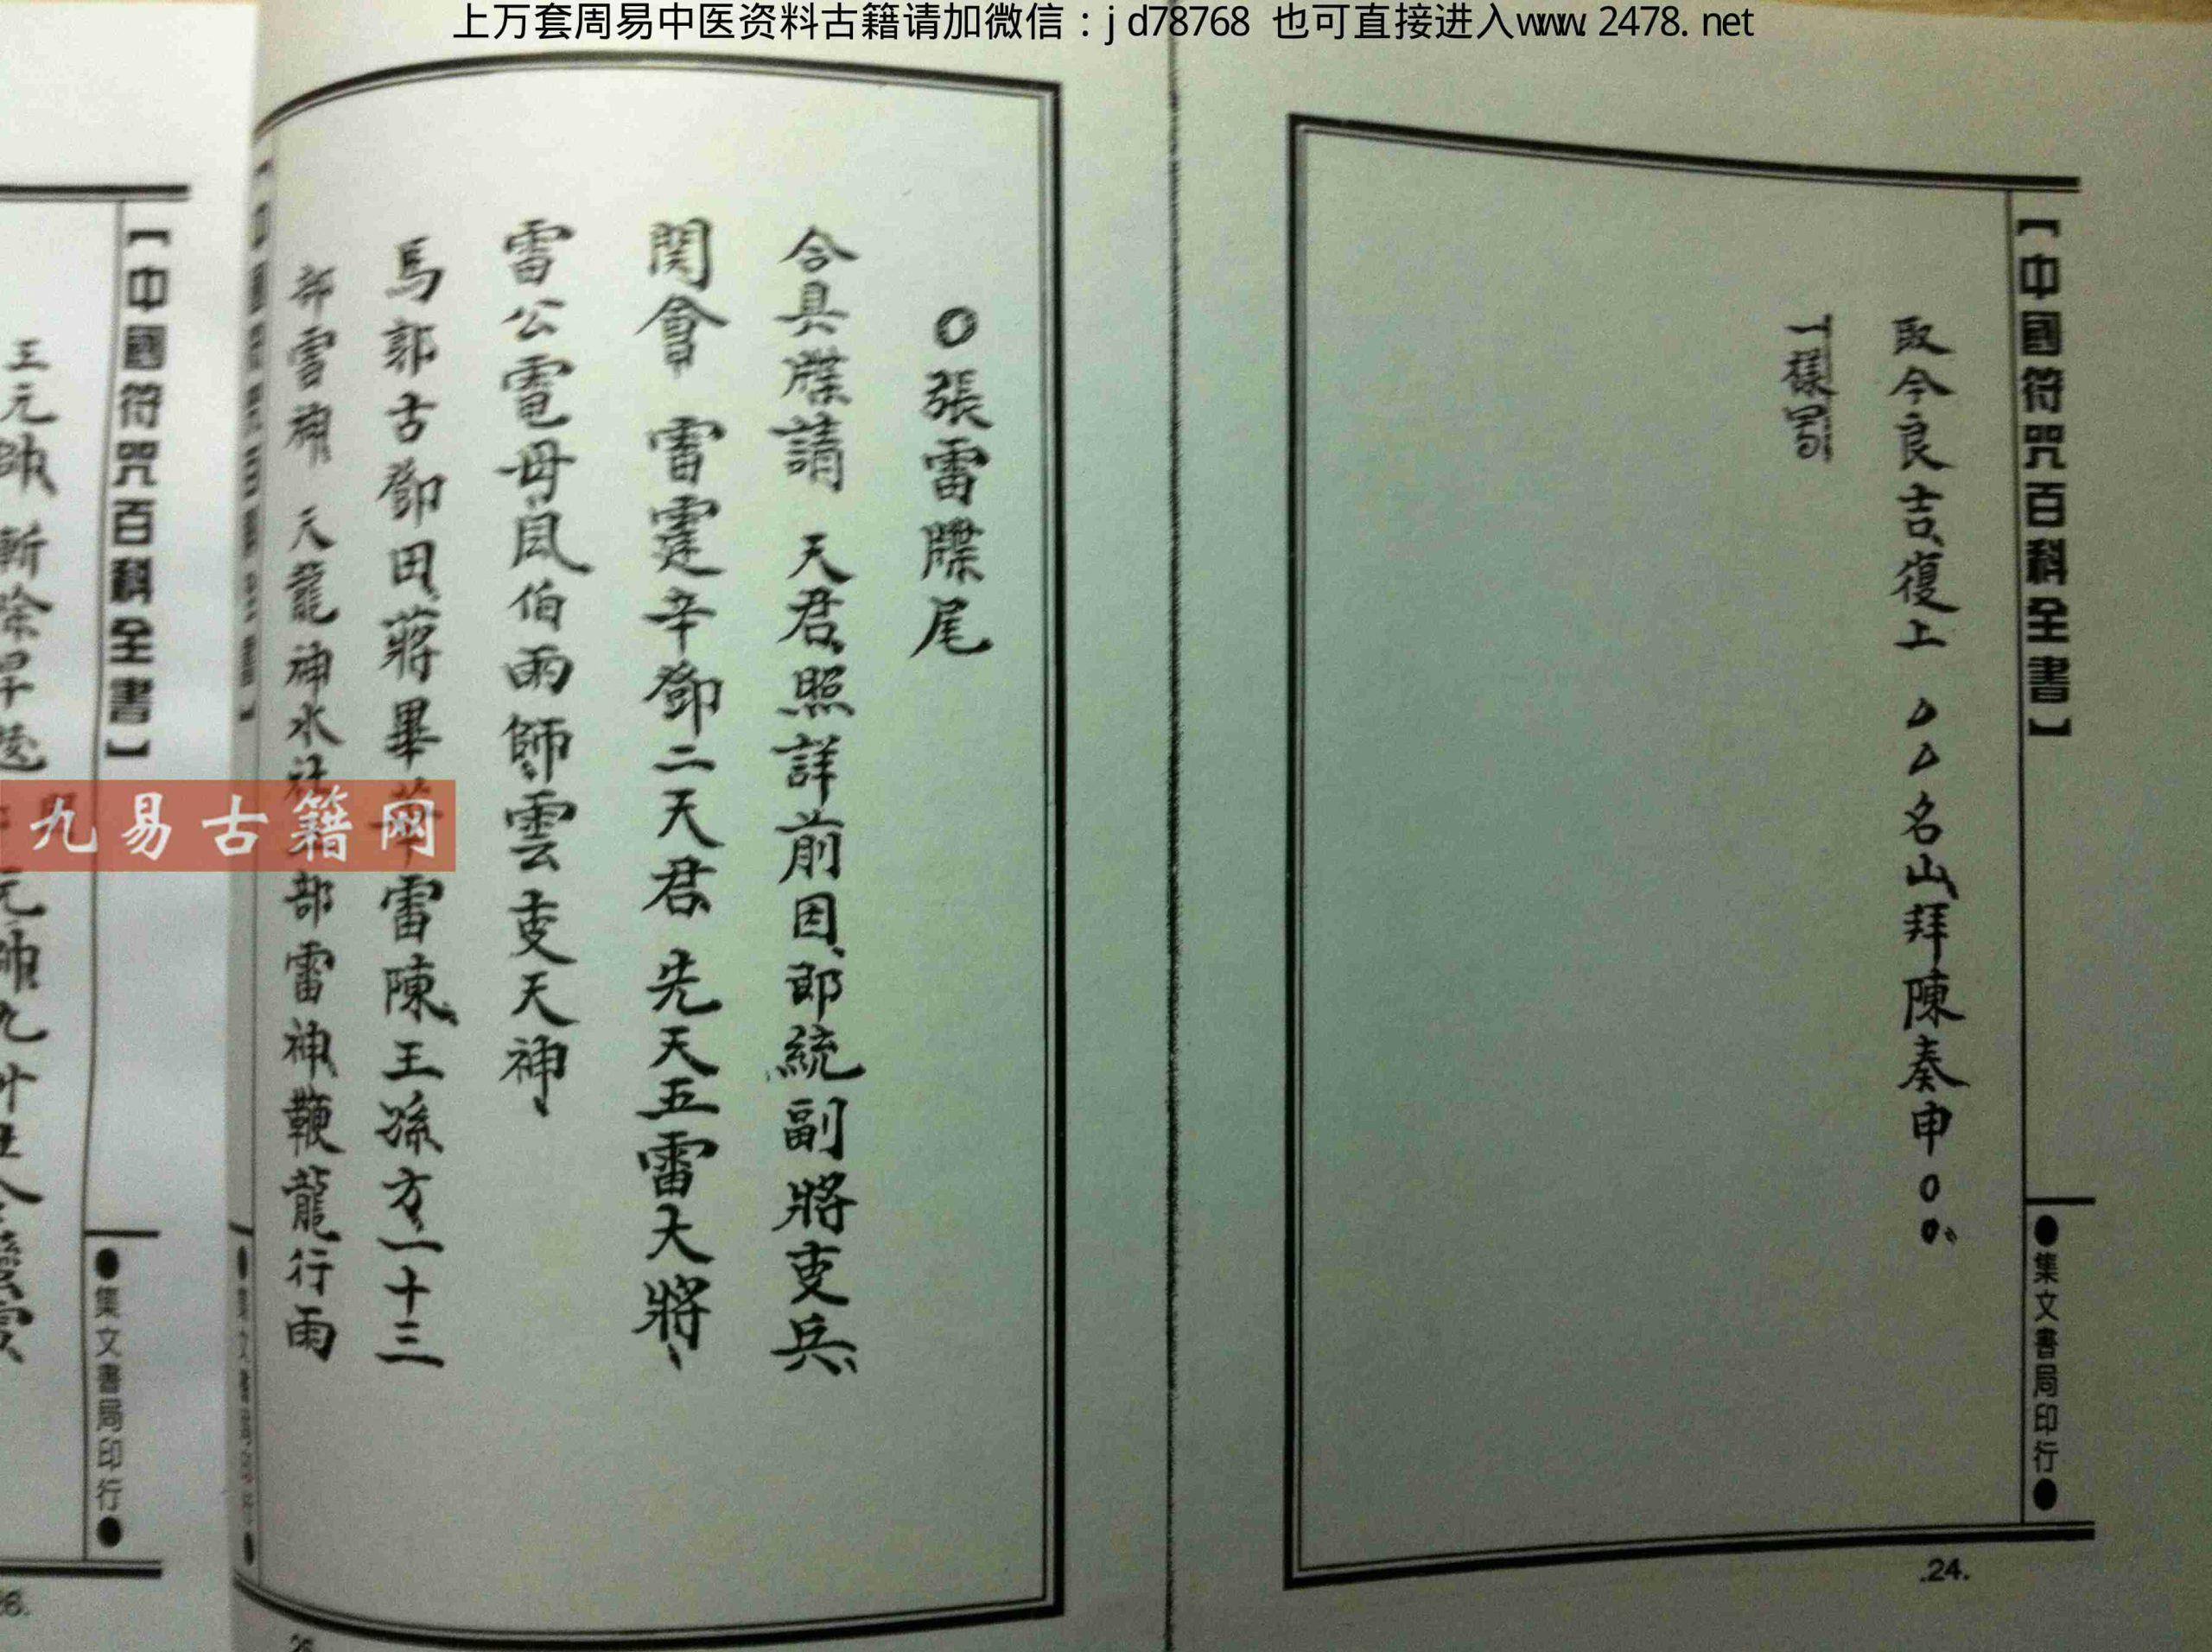 上万套周易中医资料古籍请加微信：jd78768 也可直接进入www.2478.net
【中國符咒百科全書】
●集文書局印行●
取今良吉復上 名山拜陳奏申
一樣
.24.
〇張雷牒尾
合具牒請 天君照詳前因即統副將吏兵
関會 雷霆辛鄧二天君 先天五雷大將
雷公電母風伯雨師雲吏天神
馬郭古鄧田蔣畢華雷陳王孫方一十三
部雷神 天龍神水社部雷神鞭龍行雨
九易古籍网
【中國符咒百科全書】
●集文書局印行●
王元帥 斬除旱
元帥九